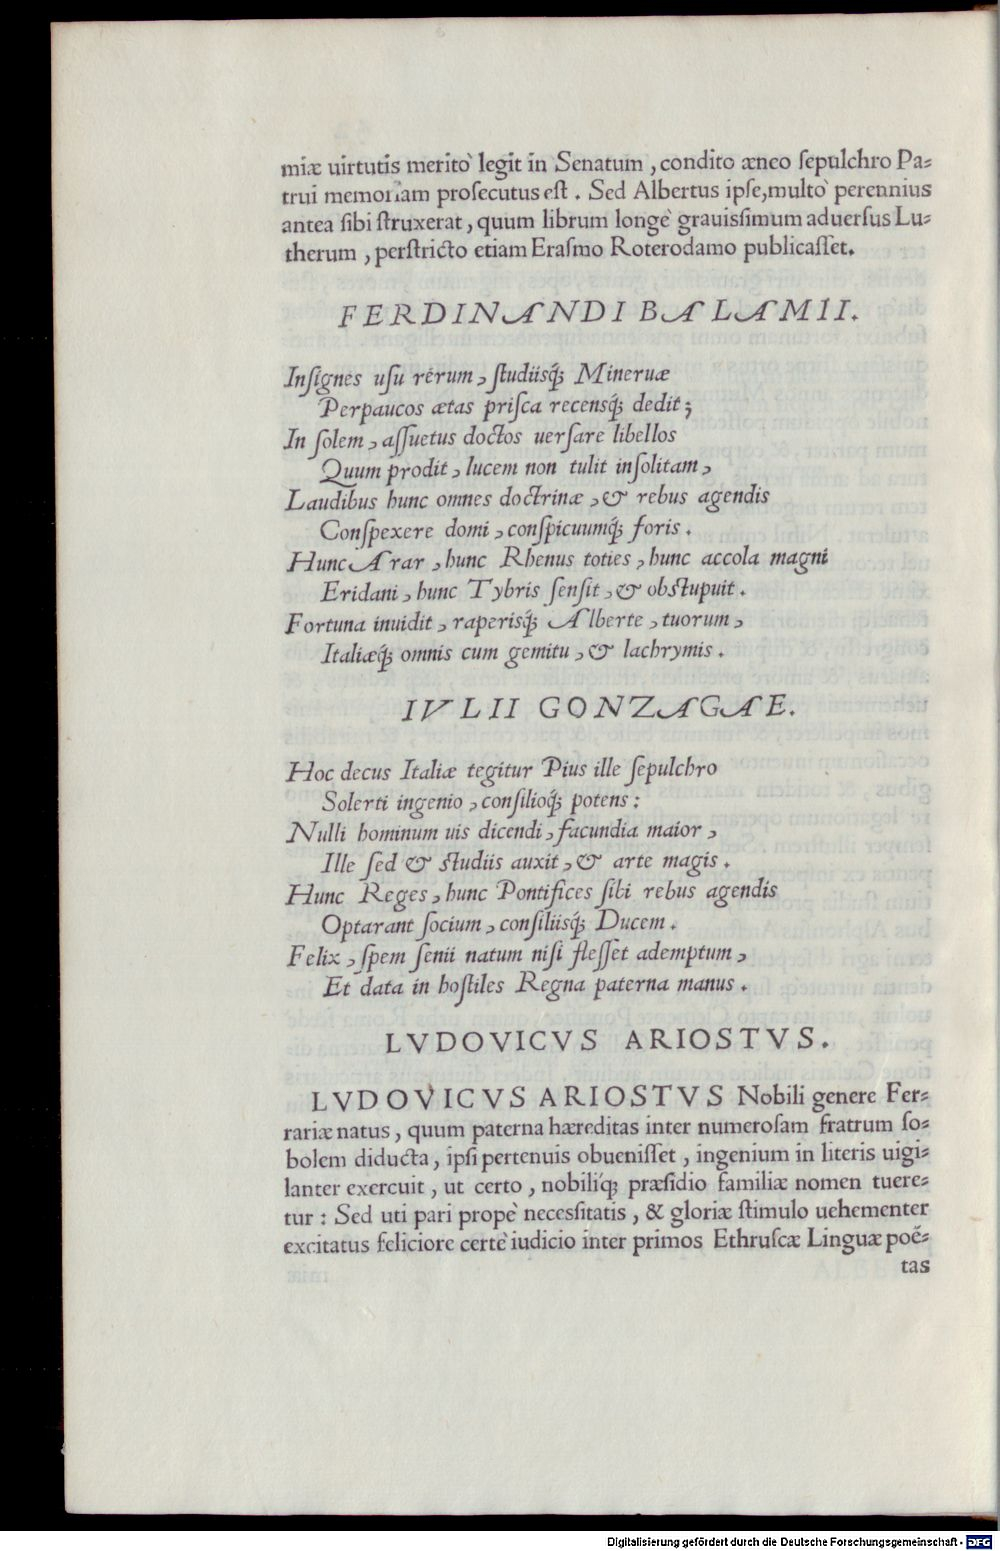 miæ uirtutis meritò legit in Senatum, condito æneo sepulchro Pa=
trui memoriam prosecutus est. Sed Albertus ipse, multò perennius
antea sibi struxerat, quum librum longè grauissimum aduersus Lu=
therum, perstricto etiam Erasmo Roterodamo publicasset.
FERDINANDI BALAMII.
Insignes usu rerum, studiisq; Mineruæ
Perpaucos ætas prisca recensq; dedit;
In solem, assuetus doctos uersare libellos
Quum prodit, lucem non tulit insolitam,
Laudibus hunc omnes doctrinæ, & rebus agendis
Conspexere domi, conspicuumq; foris.
Hunc Arar, hunc Rhenus toties, hunc accola magni
Eridani, hunc Tybris sensit, & obstupuit.
Fortuna inuidit, raperisq; Alberte, tuorum,
Italiæq; omnis cum gemitu, & lachrymis.
IVLII GONZAGAE.
Hoc decus Italiæ tegitur Pius ille sepulchro
Solerti ingenio, consilioq; potens:
Nulli hominum uis dicendi, facundia maior,
Ille sed & studiis auxit, & arte magis.
Hunc Reges, hunc Pontifices sibi rebus agendis
Optarant socium, consiliisq; Ducem.
Felix, spem senii natum nisi flesset ademptum,
Et data in hostiles Regna paterna manus.
LVDOVICVS ARIOSTVS.
LVDOVICVS ARIOSTVS Nobili genere Fer=
rariæ natus, quum paterna hæreditas inter numerosam fratrum so=
bolem diducta, ipsi pertenuis obuenisset, ingenium in literis uigi=
lanter exercuit, ut certo, nobiliq́; præsidio familiæ nomen tuere=
tur: Sed uti pari propè necessitatis, & gloriæ stimulo uehementer
excitatus feliciore certè iudicio inter primos Ethruscæ Linguæ poë=
tas
Digitalisierung gefördert durch die Deutsche Forschungsgemeinschaft - DFG